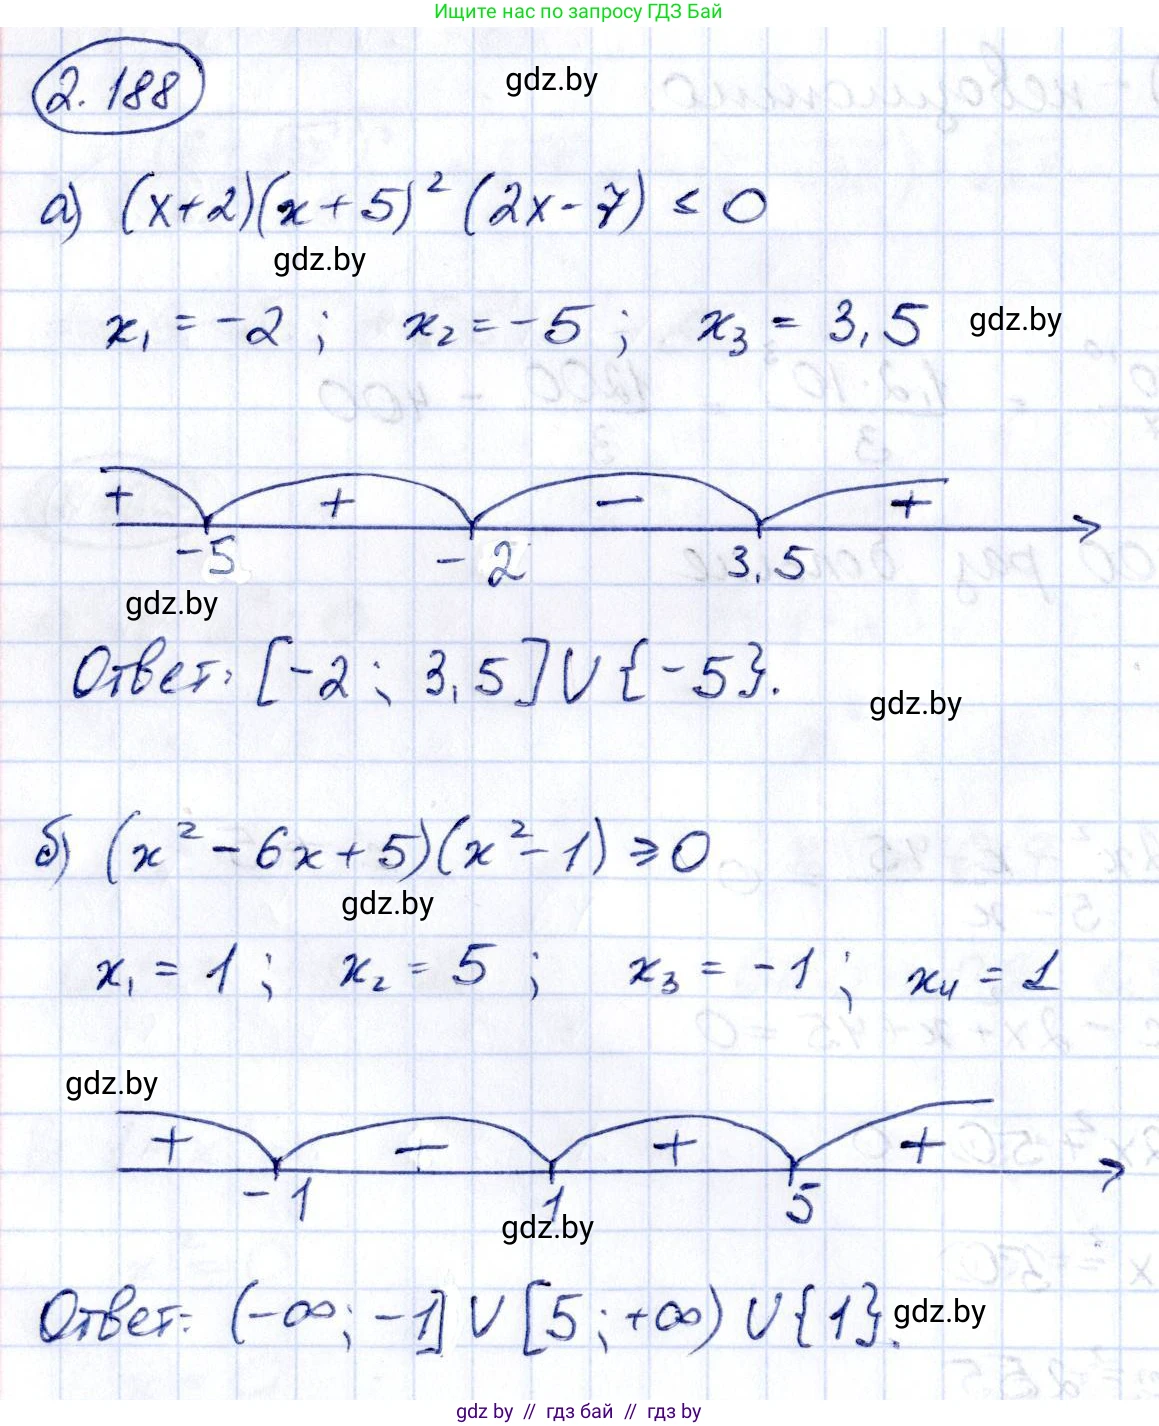 Ищите нас по запросу ГДЗ Бай
2.188
gdz.by
а) (x+2)(x+5)² (2x-7) ≤ 0
gdz.by
x₁ = -2 ; x₂ = -5 ; x₃ = 3,5 gdz.by
+ + - +
-5 -2 3,5
gdz.by
Ответ: [-2 ; 3,5] U {-5}.
gdz.by
б) (x² - 6x + 5)(x² - 1) ≥ 0
gdz.by
x₁ = 1 ; x₂ = 5 ; x₃ = -1 ; x₄ = 1
gdz.by
+ - + +
-1 1 5
gdz.by
Ответ: (-∞; -1] U [5; +∞) U {1}. gdz.by
gdz by // гдз бай // гдз by